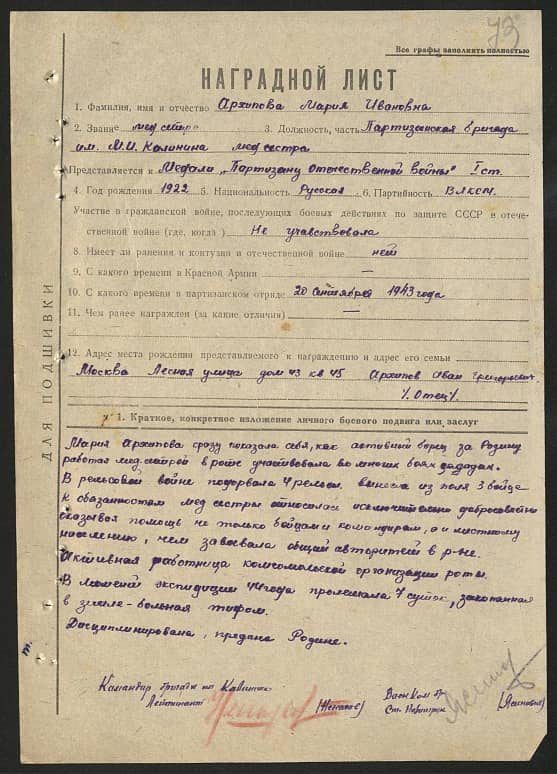 73
Все графы заполнять полностью
НАГРАДНОЙ ЛИСТ
1. Фамилия, имя и отчество Архипова Мария Ивановна
2. Звание мед сетра 3. Должность, часть Партизанская бригада
им. М.И. Калинина мед сестра
Представляется к Медали „Партизану отечественной войны" I ст.
4. Год рождения 1922 5. Национальность Русская 6. Партийность ВЛКСМ.
Участие в гражданской войне, последующих боевых действиях по защите СССР в отече-
ственной войне (где, когда) Не учавствовала
8. Имеет ли ранения и контузии в отечественной войне нет
9. С какого времени в Красной Армии —
10. С какого времени в партизанском отряде 20 сентября 1943 года
11. Чем ранее награжден (за какие отличия) —
12. Адрес места рождения представляемого к награждению и адрес его семьи
Москва Лесная улица дом 43 кв 45 Архипов Иван Григорьевич
/. Отец/.
1. Краткое, конкретное изложение личного боевого подвига или заслуг
Мария Архипова сразу показала себя, как активный борец за Родину
работая мед.сетрой в роте участвовала во многих боях
В рельсовой войне подорвала 4 рельсы. вынесла из поля 3 бойца
К обязанностям мед сестры относилась исключительно добросовестно
оказывая помощь не только бойцам и командирам, а и местному
населению, чем завоевала общий авторитет в р-не.
Активная работница комсомольской организации роты.
В майской экспидиции 44 года пролежала 7 суток, закопанная
в земле - больная тифом.
Дисциплинирована, предана Родине.
Командир бригады им Калинина
Лейтенант
Военком бр.
Ст. Политрук
ДЛЯ ПОДШИВКИ
т.